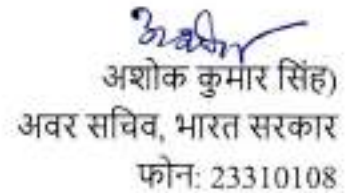 अशोक कुमार सिंह)
अवर सचिव, भारत सरकार
फोन: 23310108